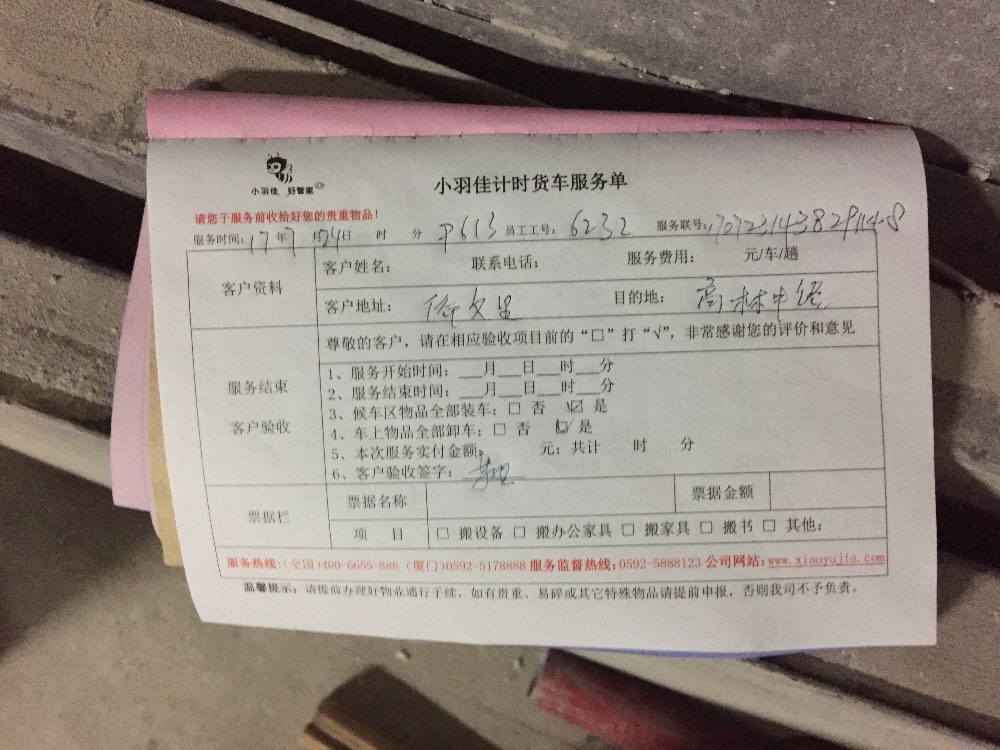 小羽佳 好管家
小羽佳计时货车服务单
请您于服务前收拾好您的贵重物品！
服务时间: 17年7月24日 时 分 P613 员工工号: 6232 服务联号:
客户资料
客户姓名: 联系电话: 服务费用: 元/车/趟
客户地址: 目的地: 高林中路
服务结束
客户验收
尊敬的客户，请在相应验收项目前的“□”打“√”，非常感谢您的评价和意见
1、服务开始时间: __月__日__时__分
2、服务结束时间: __月__日__时__分
3、候车区物品全部装车: □ 否 ☑ 是
4、车上物品全部卸车: □ 否 ☑ 是
5、本次服务实付金额: 元; 共计 时 分
6、客户验收签字:
票据栏
票据名称 票据金额
项 目 □ 搬设备 □ 搬办公家具 □ 搬家具 □ 搬书 □ 其他:
服务热线:(全国)400-6655-888 (厦门)0592-5178888 服务监督热线:0592-5888123 公司网站:www.xiaoyujia.com
温馨提示: 请提前办理好物业通行手续，如有贵重、易碎或其它特殊物品请提前申报，否则我司不予负责。